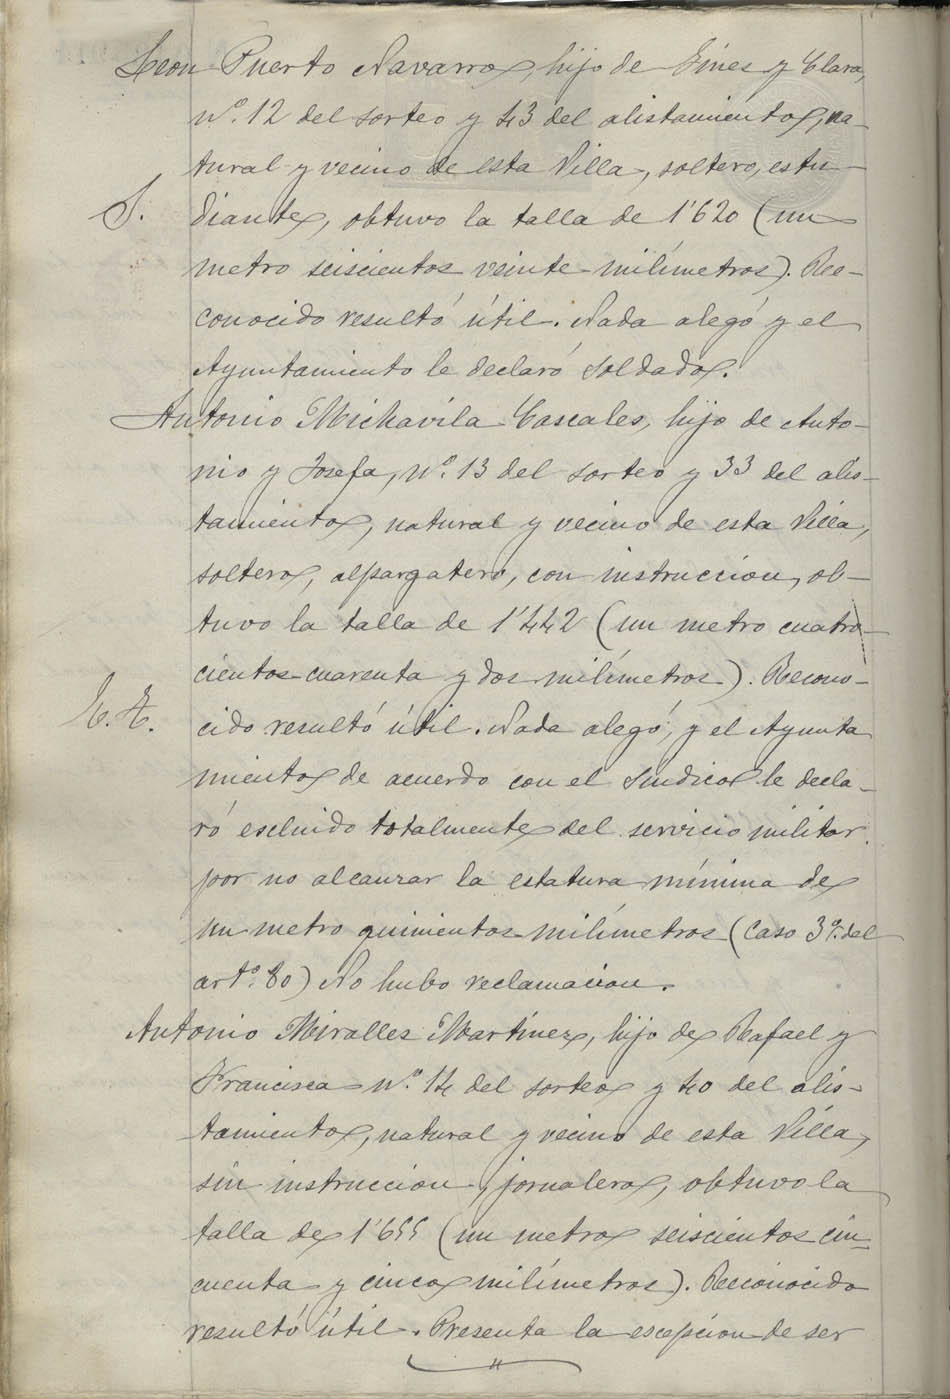 Leon Puerto Navarro, hijo de Gines y Clara,
nº. 12 del sorteo y 43 del alistamiento, na-
tural y vecino de esta Villa, soltero, estu-
S. diante, obtuvo la talla de 1'620 (un
metro seiscientos veinte milímetros). Reo-
conocido resultó útil. Nada alegó y el
Ayuntamiento le declaró soldado.
Antonio Michavila Cascales, hijo de Anto-
nio y Josefa, nº. 13 del sorteo y 33 del alis-
tamiento, natural y vecino de esta Villa,
soltero, alpargatero, con instruccion, ob-
tuvo la talla de 1'442 (un metro cuatro-
cientos cuarenta y dos milímetros). Recono-
E. T. cido resultó útil. Nada alegó, y el Ayunta
miento de acuerdo con el Sindico le decla-
ró escluido totalmente del servicio militar
por no alcanzar la estatura mínima de
un metro quinientos milímetros (Caso 3º. del
artº. 80) No hubo reclamacion.
Antonio Miralles Martínez, hijo de Rafael y
Francisca nº. 14 del sorteo y 40 del alis-
tamiento, natural y vecino de esta Villa,
sin instruccion, jornalero, obtuvo la
talla de 1'655 (un metro seiscientos cin-
cuenta y cinco milímetros). Reconocido
resultó útil. Presenta la escepcion de ser